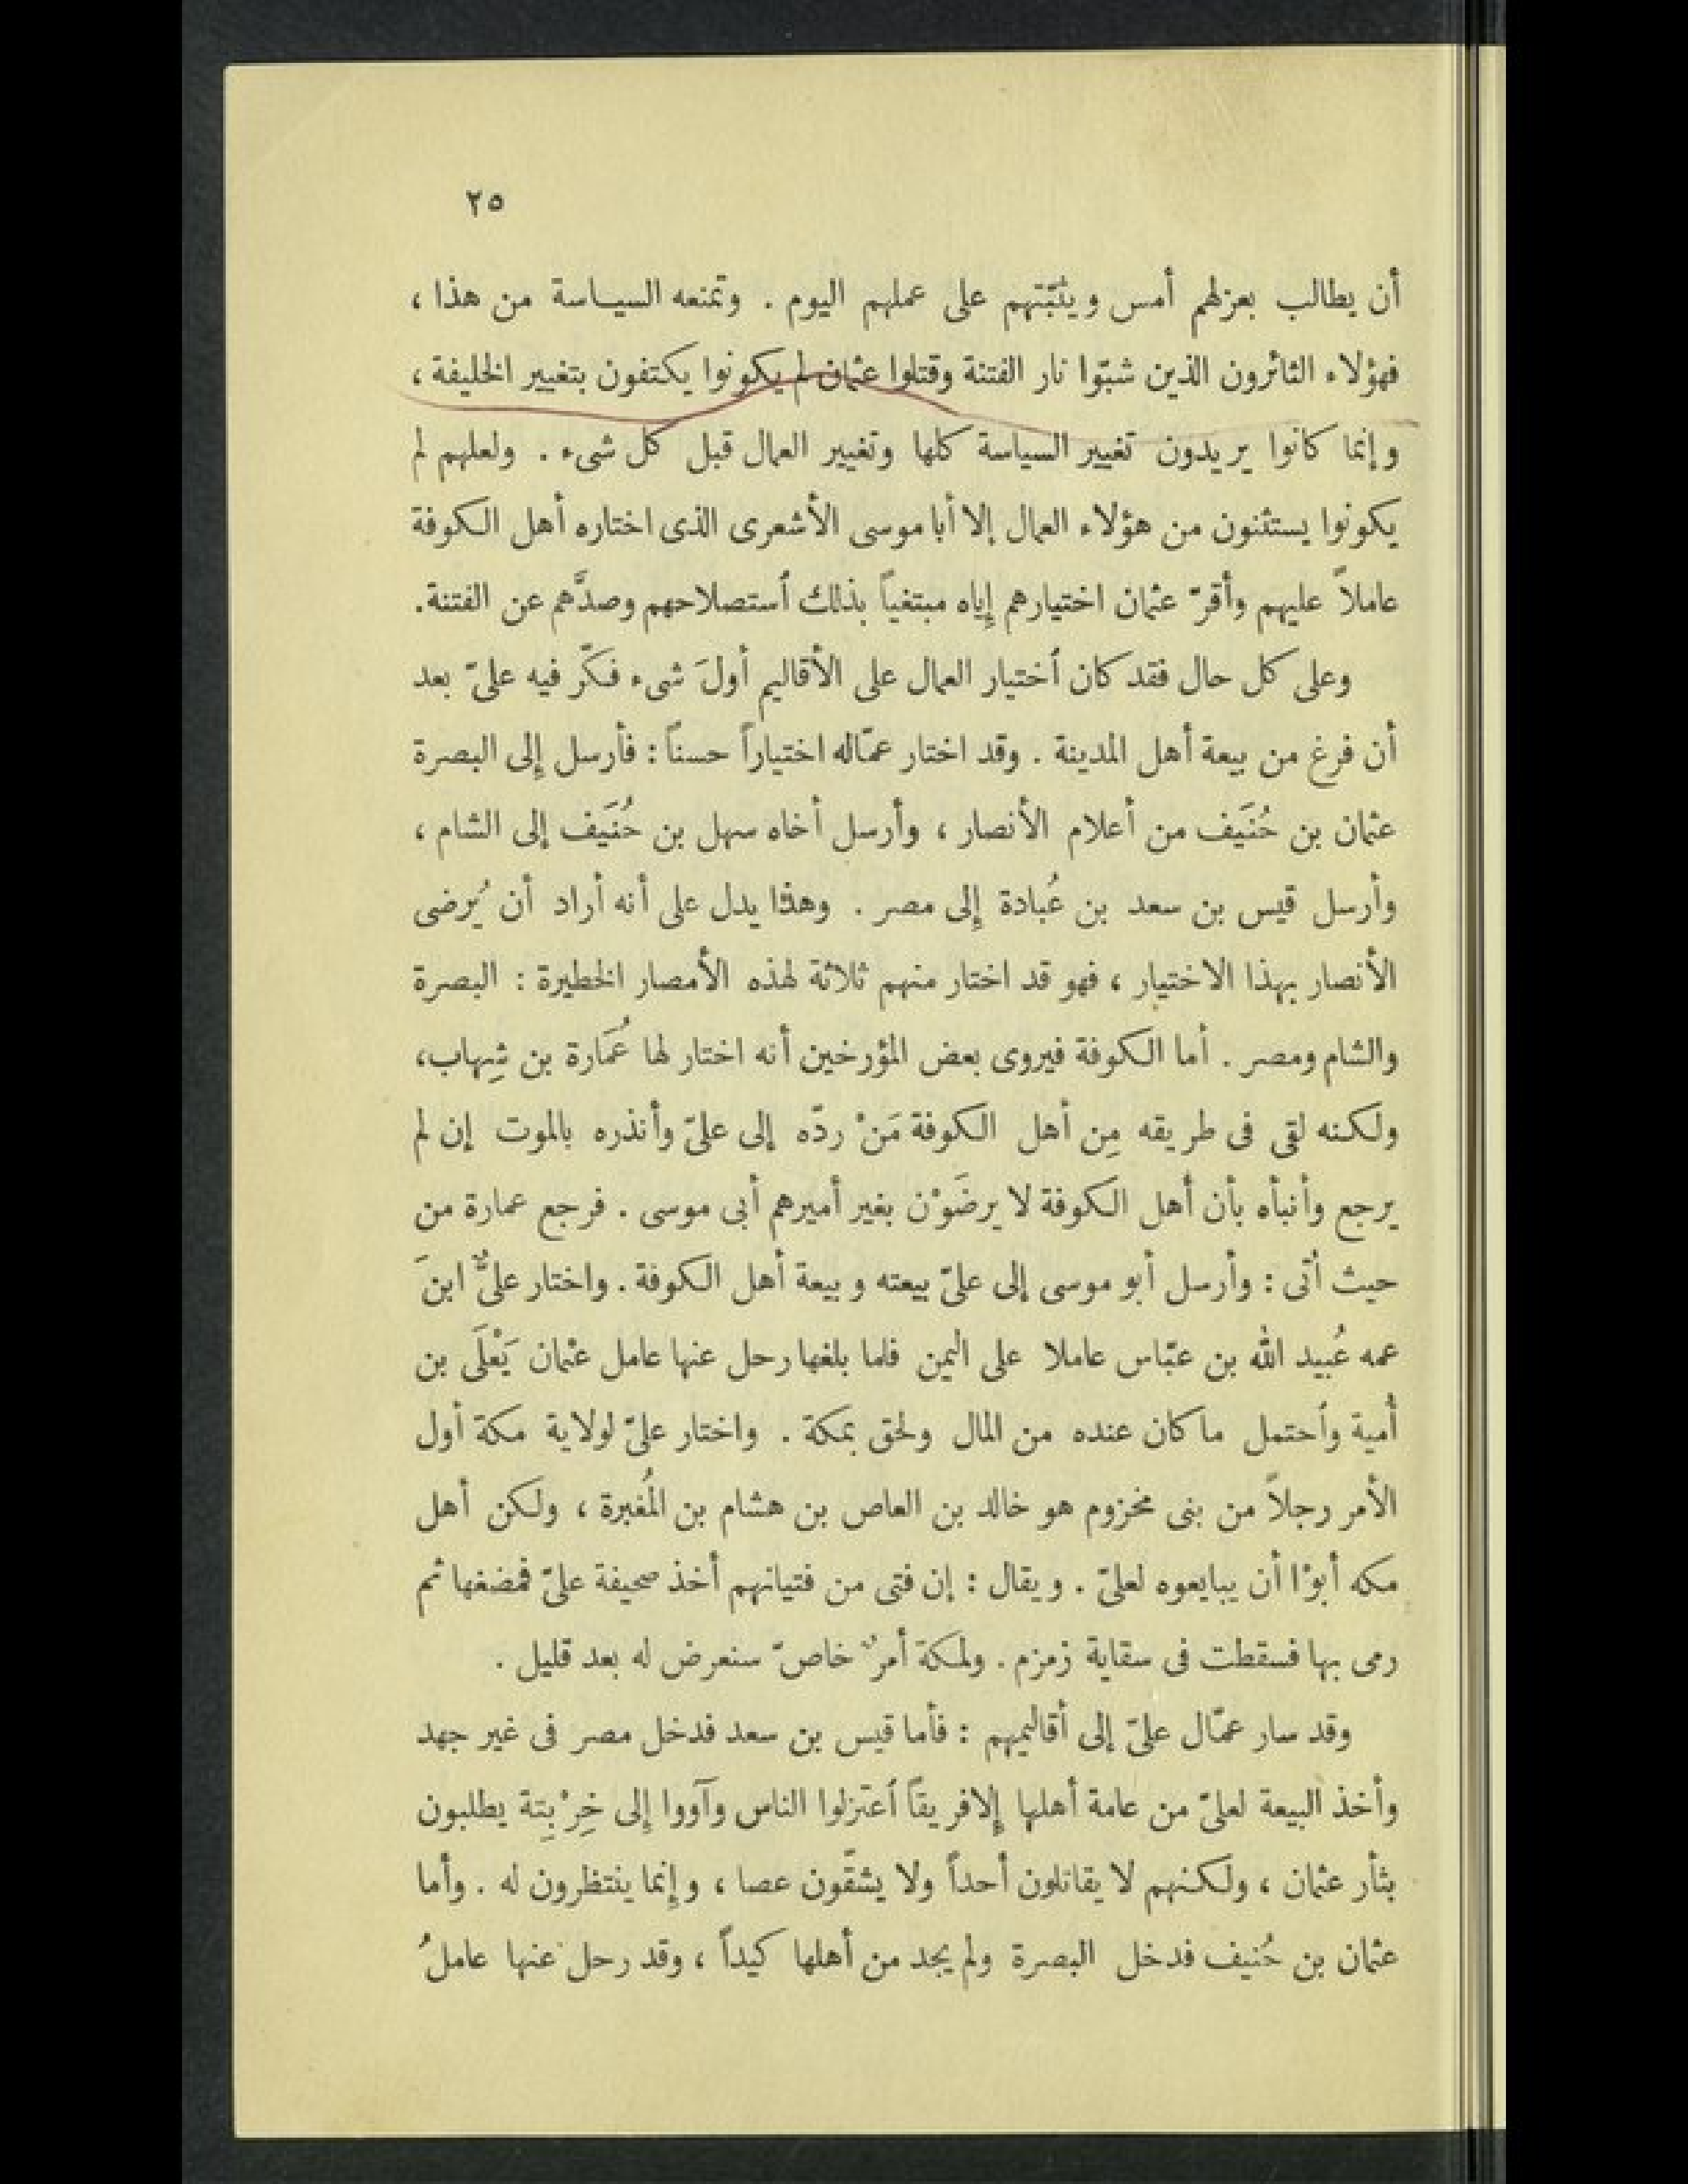 ٢٥
أن يطالب بعزلهم أمس ويثبّتهم على عملهم اليوم . وتمنعه السياسة من هذا ،
فهؤلاء الثائرون الذين شبّوا نار الفتنة وقتلوا عثمان لم يكونوا يكتفون بتغيير الخليفة ،
وإنما كانوا يريدون تغيير السياسة كلها وتغيير العمال قبل كل شىء . ولعلهم لم
يكونوا يستثنون من هؤلاء العمال إلا أبا موسى الأشعرى الذى اختاره أهل الكوفة
عاملاً عليهم وأقرّ عثمان اختيارهم إِياه مبتغياً بذلك ٱستصلاحهم وصدَّهم عن الفتنة.
وعلى كل حال فقد كان ٱختيار العمال على الأقاليم أولَ شىء فكّر فيه علىّ بعد
أن فرغ من بيعة أهل المدينة . وقد اختار عمّاله اختياراً حسناً : فأرسل إِلى البصرة
عثمان بن حُنَيف من أعلام الأنصار ، وأرسل أخاه سهل بن حُنَيف إلى الشام ،
وأرسل قيس بن سعد بن عُبادة إِلى مصر . وهذا يدل على أنه أراد أن يُرضى
الأنصار بهذا الاختيار ، فهو قد اختار منهم ثلاثة لهذه الأمصار الخطيرة : البصرة
والشام ومصر . أما الكوفة فيروى بعض المؤرخين أنه اختار لها عُمَارة بن شِهاب،
ولكنه لقى فى طريقه مِن أهل الكوفة مَنْ ردّه إلى علىّ وأنذره بالموت إن لم
يرجع وأنبأه بأن أهل الكوفة لا يرضَوْن بغير أميرهم أبى موسى . فرجع عمارة من
حيث أتى : وأرسل أبو موسى إلى علىّ بيعته وبيعة أهل الكوفة . واختار علىٌّ ابنَ
عمه عُبيد الله بن عبّاس عاملا على اليمن فلما بلغها رحل عنها عامل عثمان يَعْلَى بن
أُمية وٱحتمل ما كان عنده من المال ولحق بمكة . واختار علىّ لولاية مكة أول
الأمر رجلاً من بنى مخزوم هو خالد بن العاص بن هشام بن المُغيرة ، ولكن أهل
مكه أبوْا أن يبايعوه لعلىّ . ويقال : إن فتى من فتيانهم أخذ صحيفة علىّ فمضغها ثم
رمى بها فسقطت فى سقاية زمزم . ولمكة أمرٌ خاصّ سنعرض له بعد قليل .
وقد سار عمّال علىّ إلى أقاليمهم : فأما قيس بن سعد فدخل مصر فى غير جهد
وأخذ البيعة لعلىّ من عامة أهلها إِلا فريقاً ٱعتزلوا الناس وآووا إِلى خِرْبِتة يطلبون
بثأر عثمان ، ولكنهم لا يقاتلون أحداً ولا يشقّون عصا ، وإِنما ينتظرون له . وأما
عثمان بن حُنيف فدخل البصرة ولم يجد من أهلها كيداً ، وقد رحل عنها عاملُ